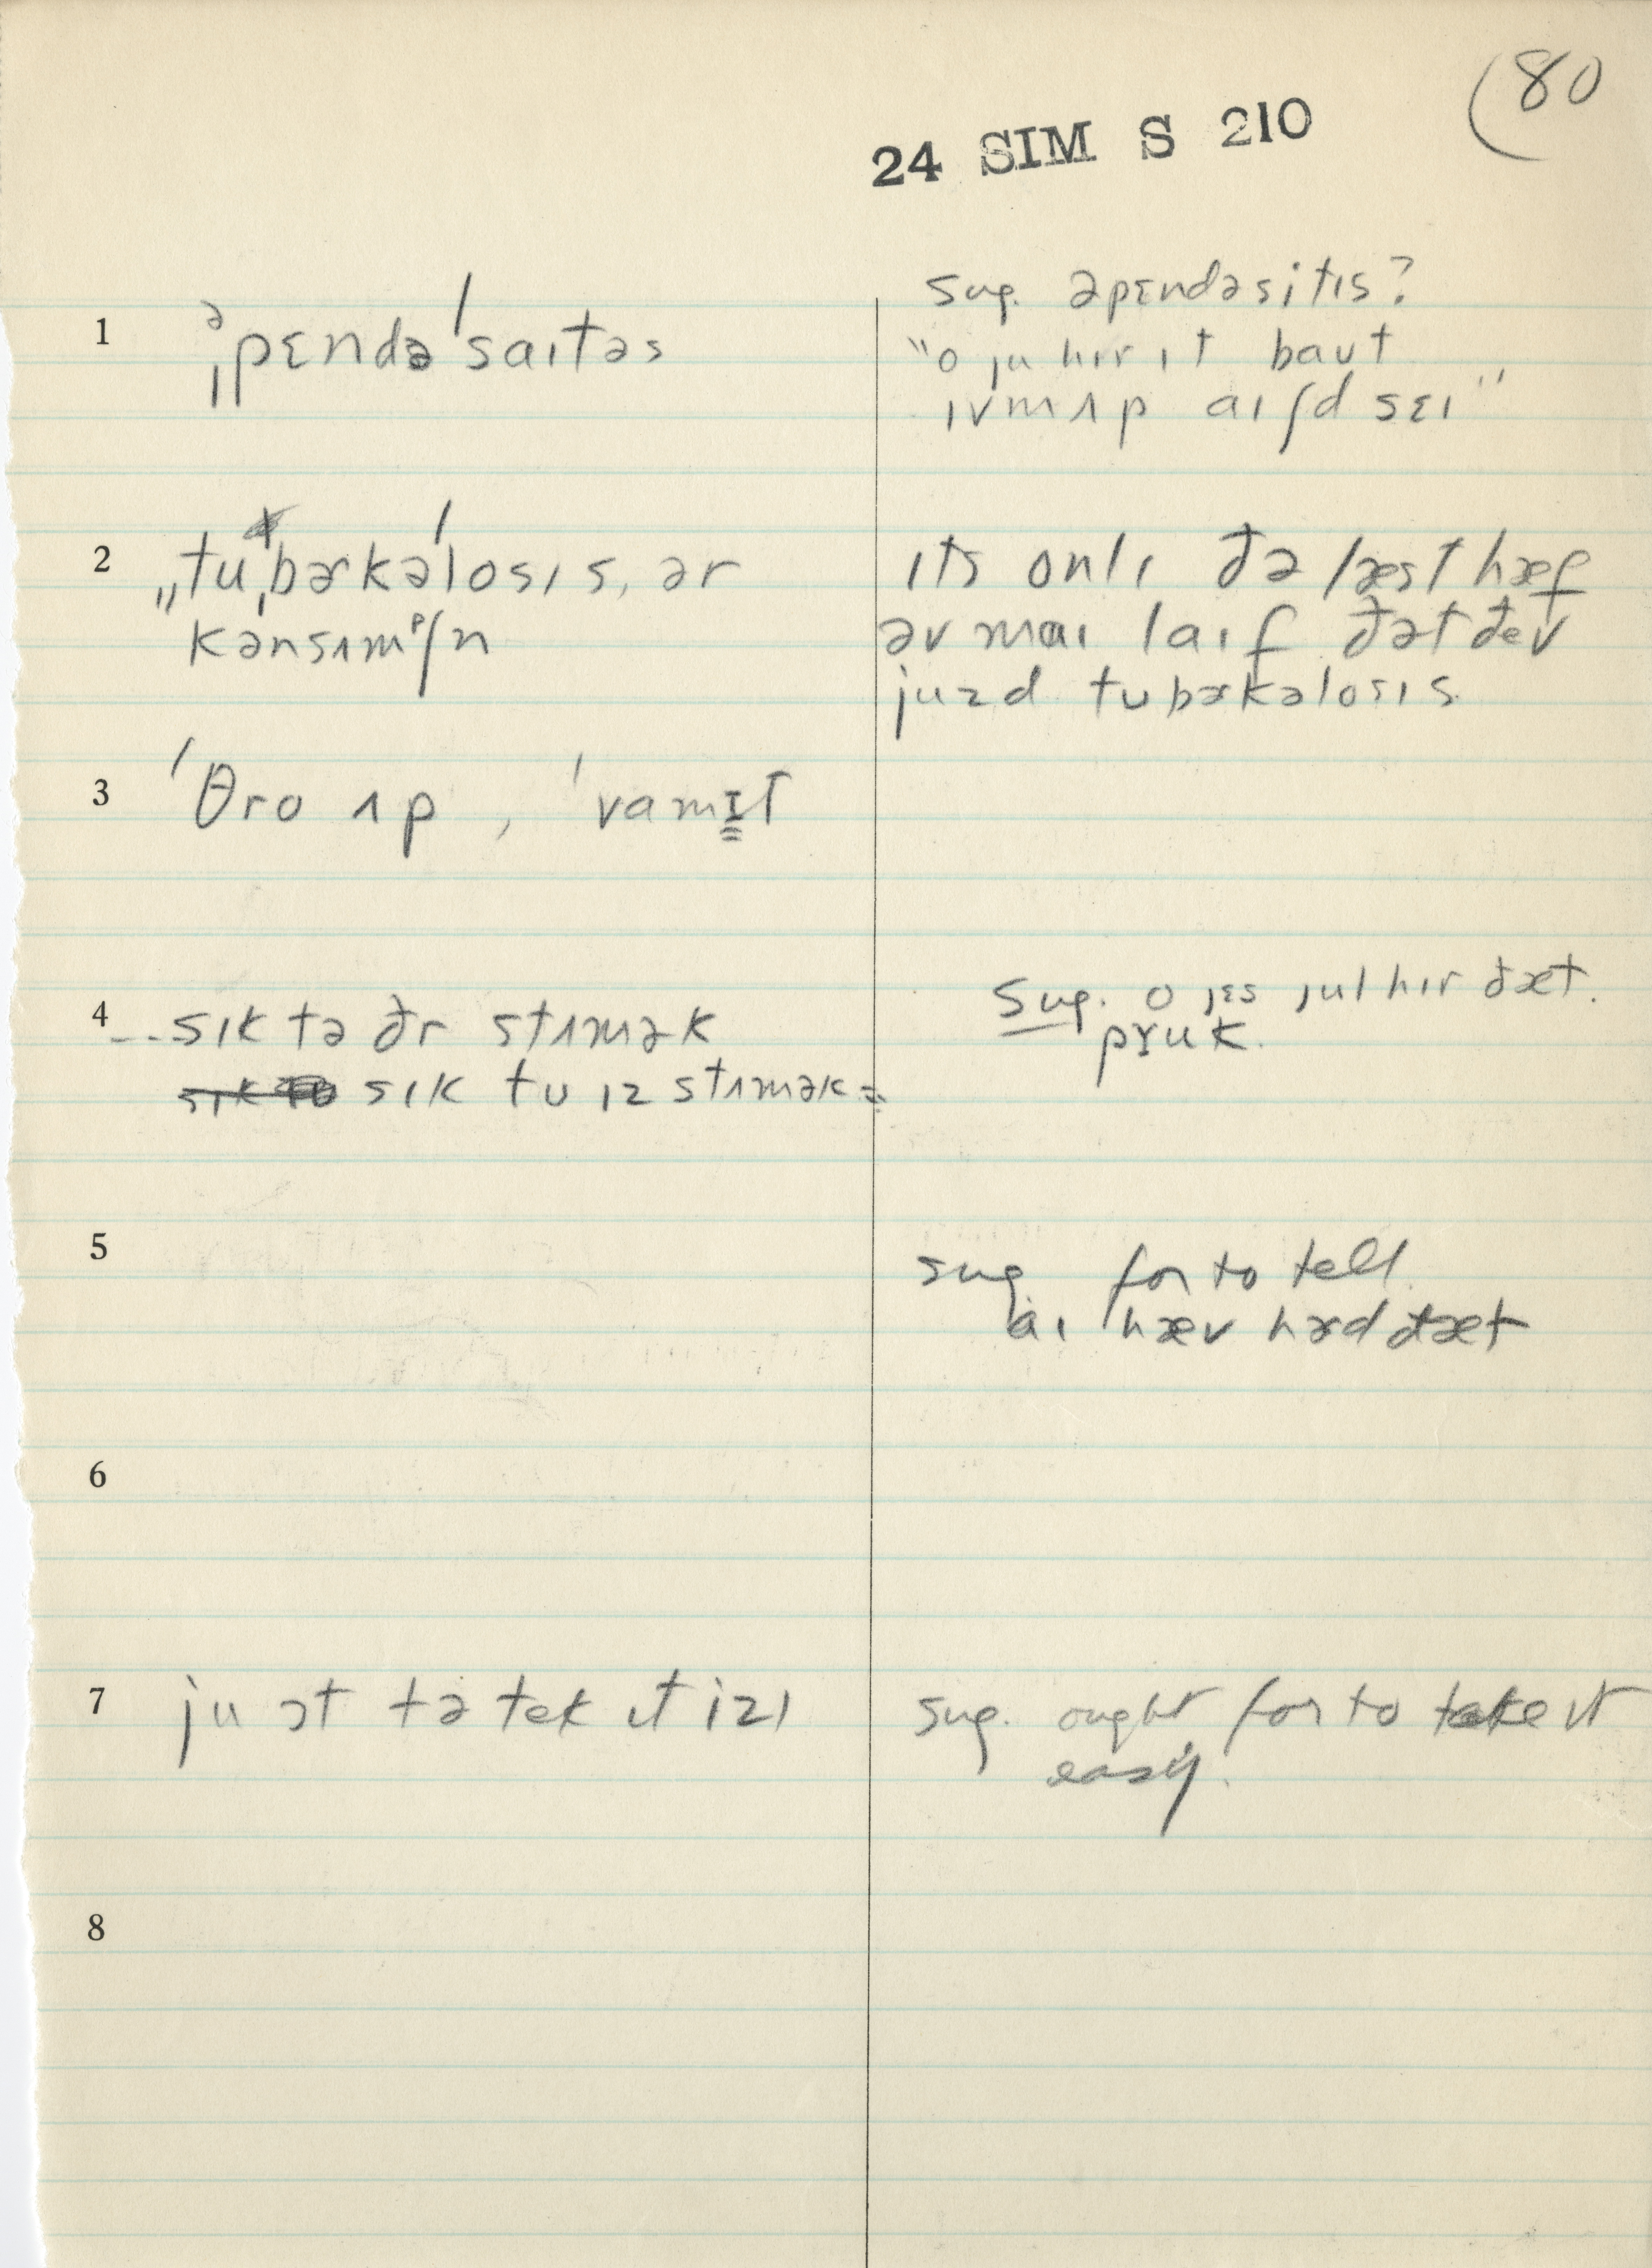 (80
24 SIM S 210
1 əˌpɛndəˈsaɪtəs
sug. əpɛndəsitɪs?
"o ju hɪr ɪt baut
ɪvmʌp aɪʃd sɛɪ"
2 ˌˌtuˌbɚkəˈlosɪs, ər
kənsʌmᵖʃn
ɪts onlɪ đə læst hæf
əv maɪ laɪf đət đev
juzd tubɚkəlosɪs.
3 ˈθro ʌp, ˈvamɪt
4 --sɪk tə đr stʌmək
sɪk tu ɪz stʌmək =
Sug. o jɛs jul hɪr đæt.
pɤuk.
5
sug for to tell
aɪ hæv hɚd đæt
6
7 ju ɔt tə tek ɪt izɪ
sug. ought for to take it
easy.
8